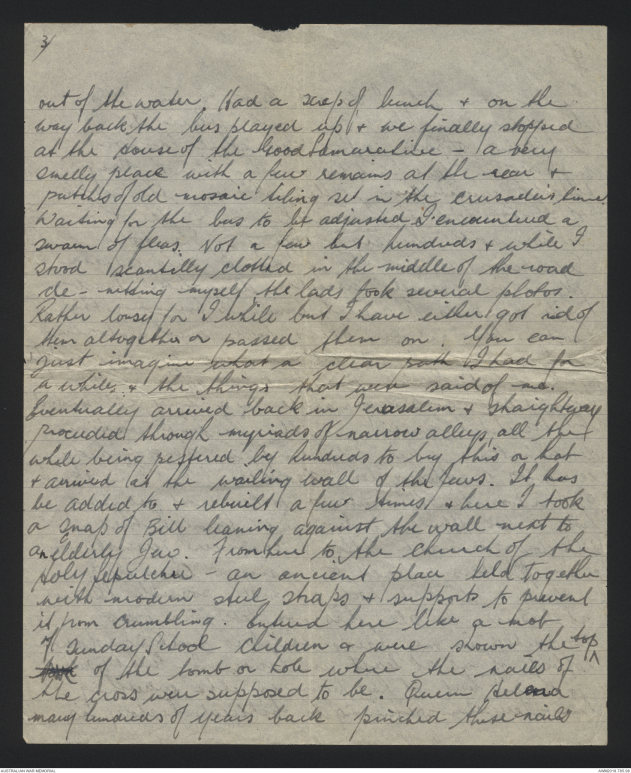 3/
out of the water. Had a scrap of lunch & on the
way back the bus played up & we finally stopped
at the house of the Good Samarative - a very
smelly place with a few remains at the rear &
patches of old mosaic tiling set in the crusaders time.
Waiting for the bus to be adjusted I encountered a
swarm of fleas. Not a few but hundreds & while I
stood scantilly clothed in the middle of the road
de-nitting myself the lads took several photos.
Rather lousy for I while but I have either got rid of
them altogether or passed them on. You can
just imagine what a clear path I had for
a while & the things that were said of me.
Eventually arrived back in Jerusalem & straightway
proceeded through myriads of narrow alleys, all the
while being pestered by hundreds to buy this or that
& arrived at the wailing wall of the Jews. It has
be added to & rebuilt a few times & here I took
a snap of Bill leaning against the wall next to
an elderly Jew. From here to the Church of the
Holy Sepulchre - an ancient place held together
with modern steel straps & supports to prevent
it from crumbling. Entered here like a mob
of Sunday School children & were shown the top
of the tomb or hole where the nails of
the cross were supposed to be. Queen
many hundreds of years back pinched these nails
AUSTRALIAN WAR MEMORIAL